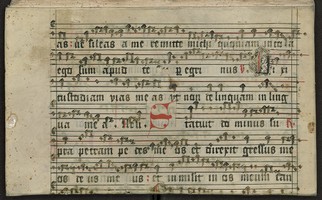 as: ne sileas a me remitte michi quoniam incola
ego sum apud te p egri nus V. D i xi
custodiam vias me as vt non relinquam in ling
ua me a. Ne si. S tatuit do minus su R.
pra petram pe des me os et direxit gressus me
os de us me us: et inmisit in os meum can